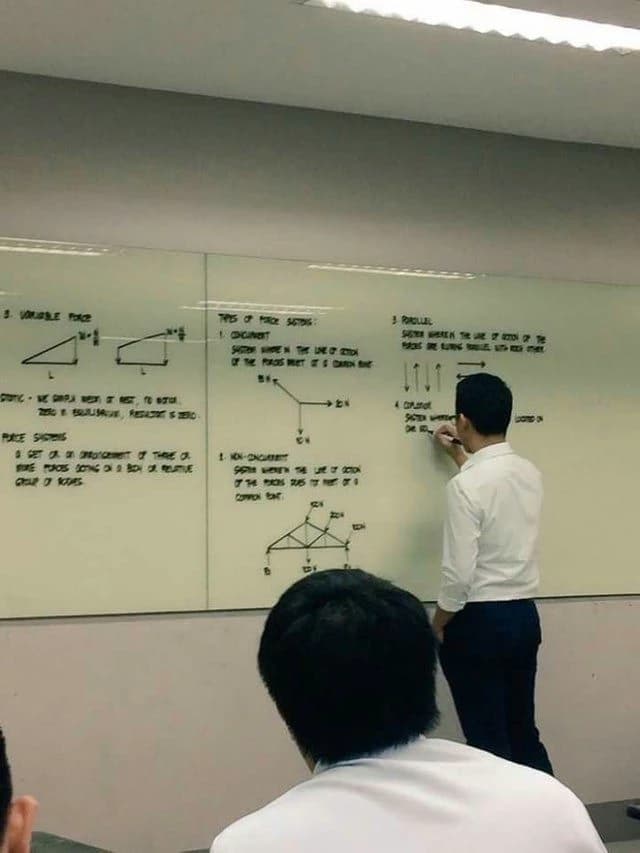 3. VARIABLE FORCE
L
L
STATIC - WE SIMPLY MEAN AT REST, NO MOTION.
ZERO IN EQUILIBRIUM, RESULTANT IS ZERO.
FORCE SYSTEMS
A SET OR AN ARRANGEMENT OF THREE OR
MORE FORCES ACTING ON A BODY OR RELATIVE
GROUP OF BODIES.
TYPES OF FORCE SYSTEMS:
1. CONCURRENT
SYSTEM WHERE IN THE LINE OF ACTION
OF THE FORCES MEET AT A COMMON POINT.
20 N
10 N
2. NON-CONCURRENT
SYSTEM WHEREIN THE LINE OF ACTION
OF THE FORCES DOES NOT MEET AT A
COMMON POINT.
3. PARALLEL
SYSTEM WHEREIN THE LINE OF ACTION OF THE
FORCES ARE RUNNING PARALLEL WITH EACH OTHER.
4. COPLANAR
SYSTEM WHEREIN LOCATED IN
ONE